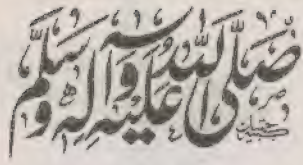 صَلَّى اللّٰهُ عَلَيْهِ وَآلِهٖ وَسَلَّمَ